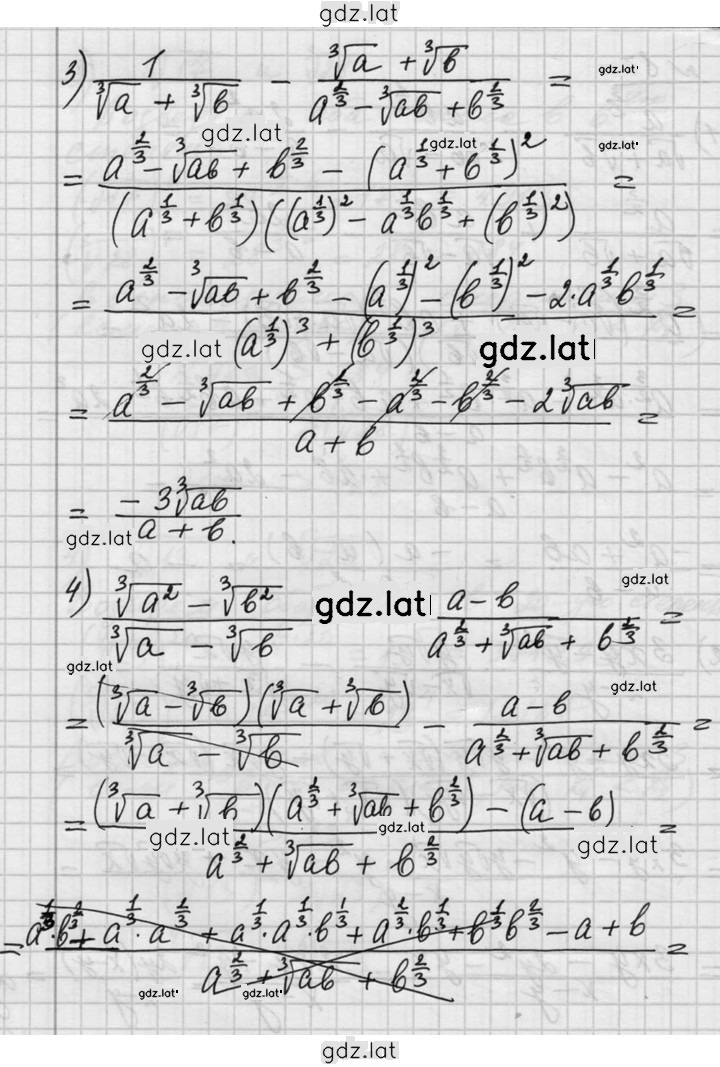 gdz.lat
3) 1/(∛a + ∛b) − (∛a + ∛b)/(a^(2/3) − ∛ab + b^(2/3)) = gdz.lat
gdz.lat
= (a^(2/3) − ∛ab + b^(2/3) − (a^(1/3) + b^(1/3))^2)/((a^(1/3) + b^(1/3))((a^(1/3))^2 − a^(1/3)b^(1/3) + (b^(1/3))^2)) = gdz.lat gdz.lat
= (a^(2/3) − ∛ab + b^(2/3) − (a^(1/3))^2 − (b^(1/3))^2 − 2·a^(1/3)b^(1/3))/((a^(1/3))^3 + (b^(1/3))^3) =
gdz.lat gdz.lat
= (a^(2/3) − ∛ab + b^(2/3) − a^(2/3) − b^(2/3) − 2∛ab)/(a + b) =
= (−3∛ab)/(a + b).
gdz.lat
4) (∛a² − ∛b²)/(∛a − ∛b) gdz.lat (a − b)/(a^(2/3) + ∛ab + b^(2/3)) = gdz.lat
gdz.lat gdz.lat
= ((∛a − ∛b)(∛a + ∛b))/(∛a − ∛b) − (a − b)/(a^(2/3) + ∛ab + b^(2/3)) =
= ((∛a + ∛b)(a^(2/3) + ∛ab + b^(2/3)) − (a − b))/(a^(2/3) + ∛ab + b^(2/3)) =
gdz.lat gdz.lat gdz.lat
= (a^(1/3)·b^(2/3) + a^(1/3)·a^(2/3) + a^(1/3)·a^(1/3)·b^(1/3) + a^(2/3)·b^(1/3) + b^(1/3)b^(2/3) − a + b)/(a^(2/3) + ∛ab + b^(2/3)) =
gdz.lat gdz.lat
gdz.lat